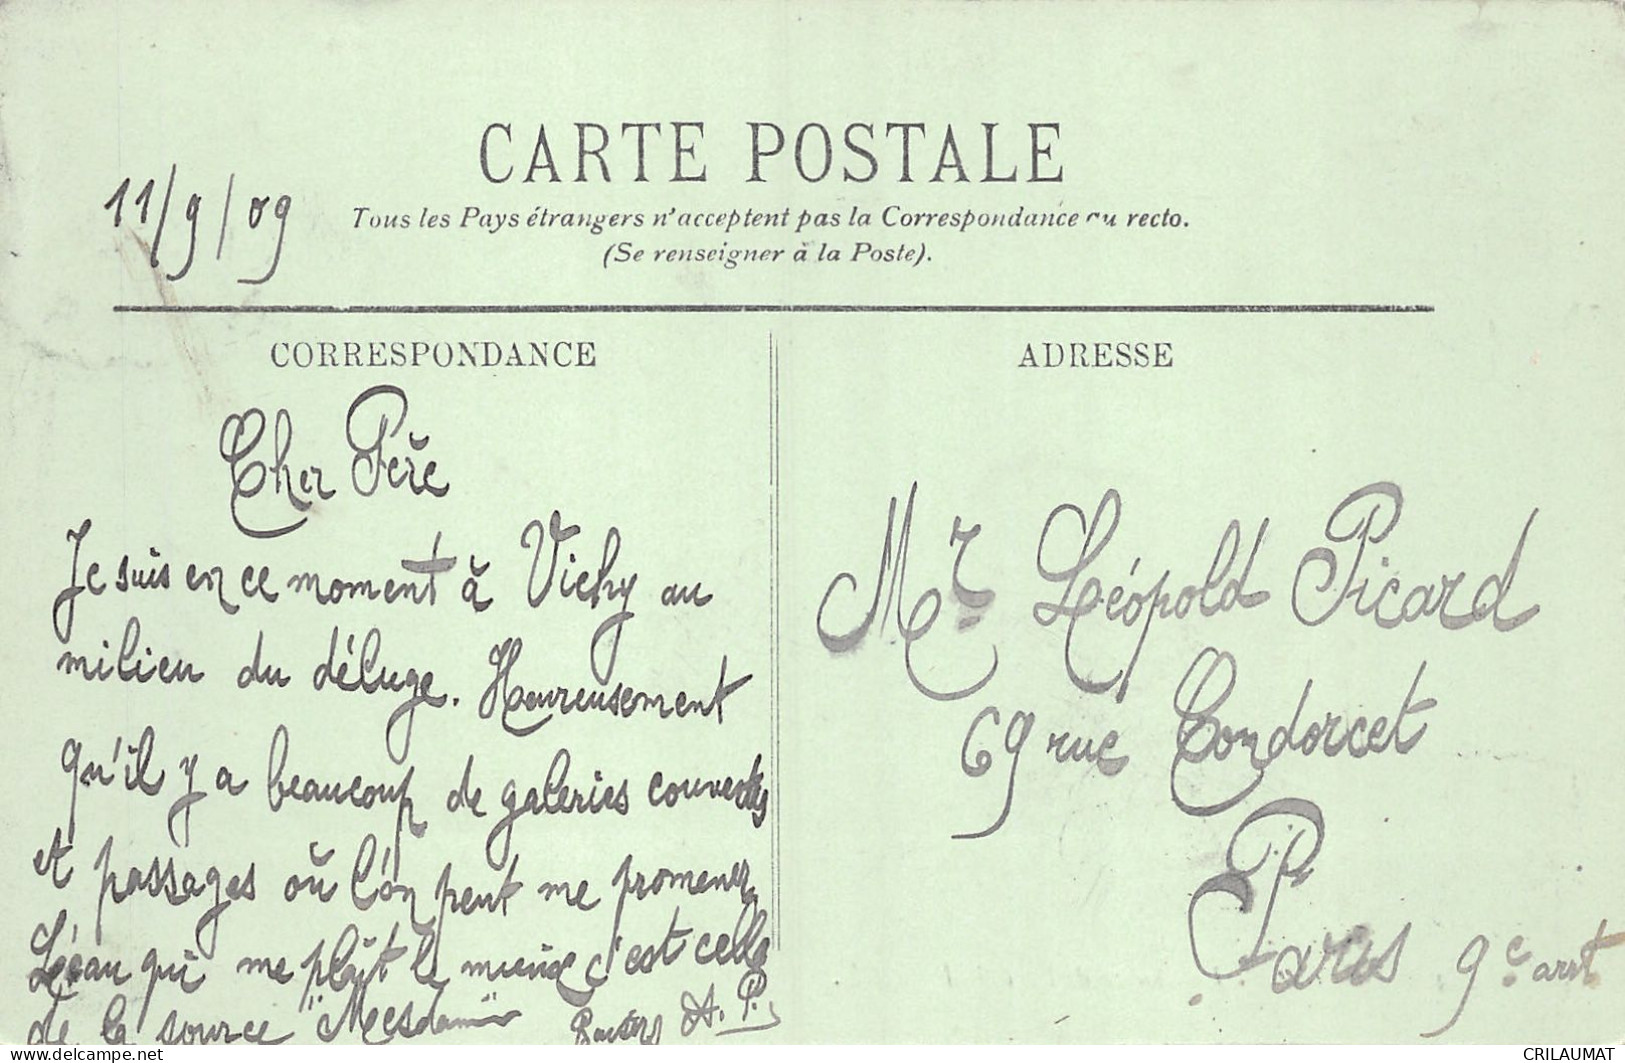 CARTE POSTALE
11/9/09
Tous les Pays étrangers n'acceptent pas la Correspondance au recto.
(Se renseigner à la Poste).
CORRESPONDANCE
Cher Père
Je suis en ce moment à Vichy au
milieu du déluge. Heureusement
qu'il y a beaucoup de galeries couvertes
et passages où l'on peut me promener
L'eau qui me plaît le mieux c'est celle
de la source "Mesdames"
A. P.
ADRESSE
Mr Léopold Picard
69 rue Condorcet
Paris 9e arrt
CRILAUMAT